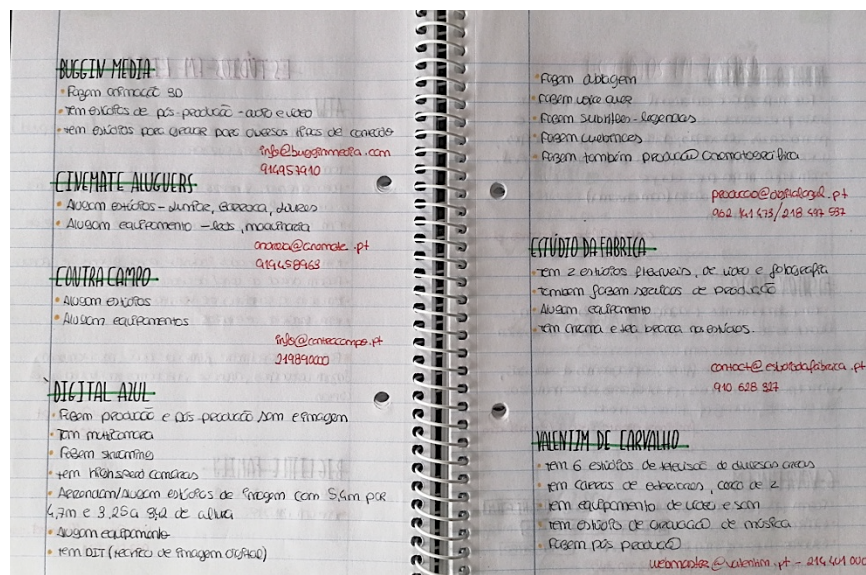 BUGGIN MEDIA
• Fazem animação 3D
• Tem estúdios de pós-produção - audio e video
• Tem estúdios para gravar para diversos tipos de conteúdo
info@bugginmedia.com
914957910
CINEMATE ALUGUERS
• Alugam estúdios -
• Alugam equipamento - leds, maquinaria
@cinemate.pt
919458963
CONTRA CAMPO
• Alugam estúdios
• Alugam equipamentos
info@contracampo.pt
219890000
DIGITAL AZUL
• Fazem produção e pós-produção som e imagem
• Tem multicamera
• Fazem streaming
• Tem high speed cameras
• Alugam estúdios de imagem com 5,4m por
4,7m e 3,25 a de altura
• Alugam equipamento
• Tem DIT (técnico de imagem digital)
• Fazem dobragem
• Fazem voice over
• Fazem subtitles - legendas
• Fazem
• Fazem também produção cinematográfica
producao@digitalazul.pt
962 141 473/218 497 537
ESTÚDIO DA FABRICA
• Tem 2 estúdios flexiveis, de video e fotografia
• Também fazem serviços de produção
• Alugam equipamento
• Tem e tela branca nos estúdios.
contact@estudiodafabrica.pt
910 628 327
VALENTIM DE CARVALHO
• Tem 6 estúdios de televisão de diversas areas
• Tem carros de exteriores, cerca de 2
• Tem equipamento de video e som
• Tem estúdio de gravação de música
• Fazem pós produção
webmaster@valentim.pt - 214 401 000